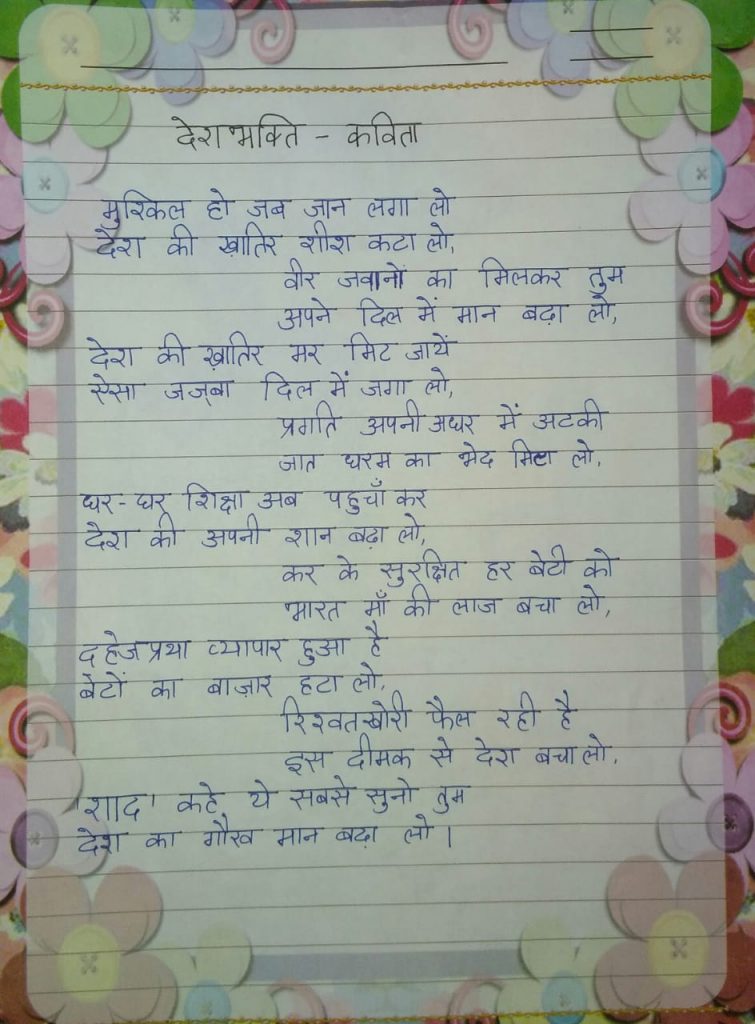 देशभक्ति - कविता
मुश्किल हो जब जान लगा लो
देश की ख़ातिर शीश कटा लो,
वीर जवानों का मिलकर तुम
अपने दिल में मान बढ़ा लो,
देश की ख़ातिर मर मिट जायें
ऐसा जज़्बा दिल में जगा लो,
प्रगति अपनी अधर में अटकी
जात धरम का भेद मिटा लो,
घर-घर शिक्षा अब पहुचाँ कर
देश की अपनी शान बढ़ा लो,
कर के सुरक्षित हर बेटी को
भारत माँ की लाज बचा लो,
दहेजप्रथा व्यापार हुआ है
बेटों का बाज़ार हटा लो,
रिश्वतखोरी फैल रही है
इस दीमक से देश बचा लो,
'शाद' कहे ये सबसे सुनो तुम
देश का गौरव मान बढ़ा लो।